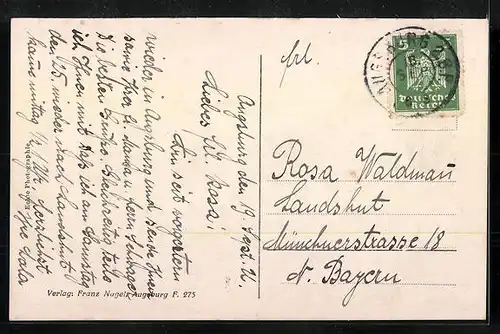 Augsburg den 19. Sept. 26.
Liebes frl. Rosa!
Bin seit vorgestern
wieder in Augsburg und sende Ihnen
sowie Ihrer lb. Mama u. Herrn
die besten Grüße. Gleichzeitig teile
ich Ihnen mit daß ich am Samstag
den 25. wieder nach Landshut
komme mittag 1/2 1 Uhr. Herzlichst
frl.
Rosa Waldmau
Landshut
Münchnerstrasse 18
N. Bayern
AUGSBURG 2
5
Deutsches
Reich
Verlag: Franz Nagel, Augsburg F. 275